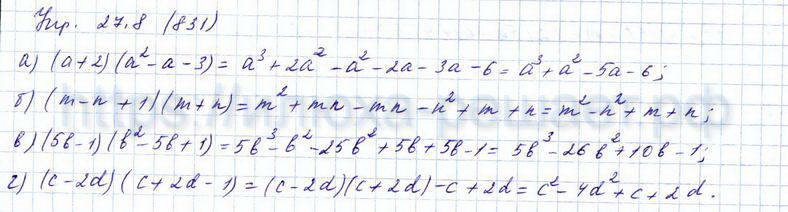 Упр. 27.8 (831)
а) (a+2)(a²-a-3) = a³+2a²-a²-2a-3a-6 = a³+a²-5a-6;
б) (m-n+1)(m+n) = m²+mn-mn-n²+m+n = m²-n²+m+n;
в) (5b-1)(b²-5b+1) = 5b³-b²-25b²+5b+5b-1 = 5b³-26b²+10b-1;
г) (c-2d)(c+2d-1) = (c-2d)(c+2d)-c+2d = c²-4d²+c+2d.